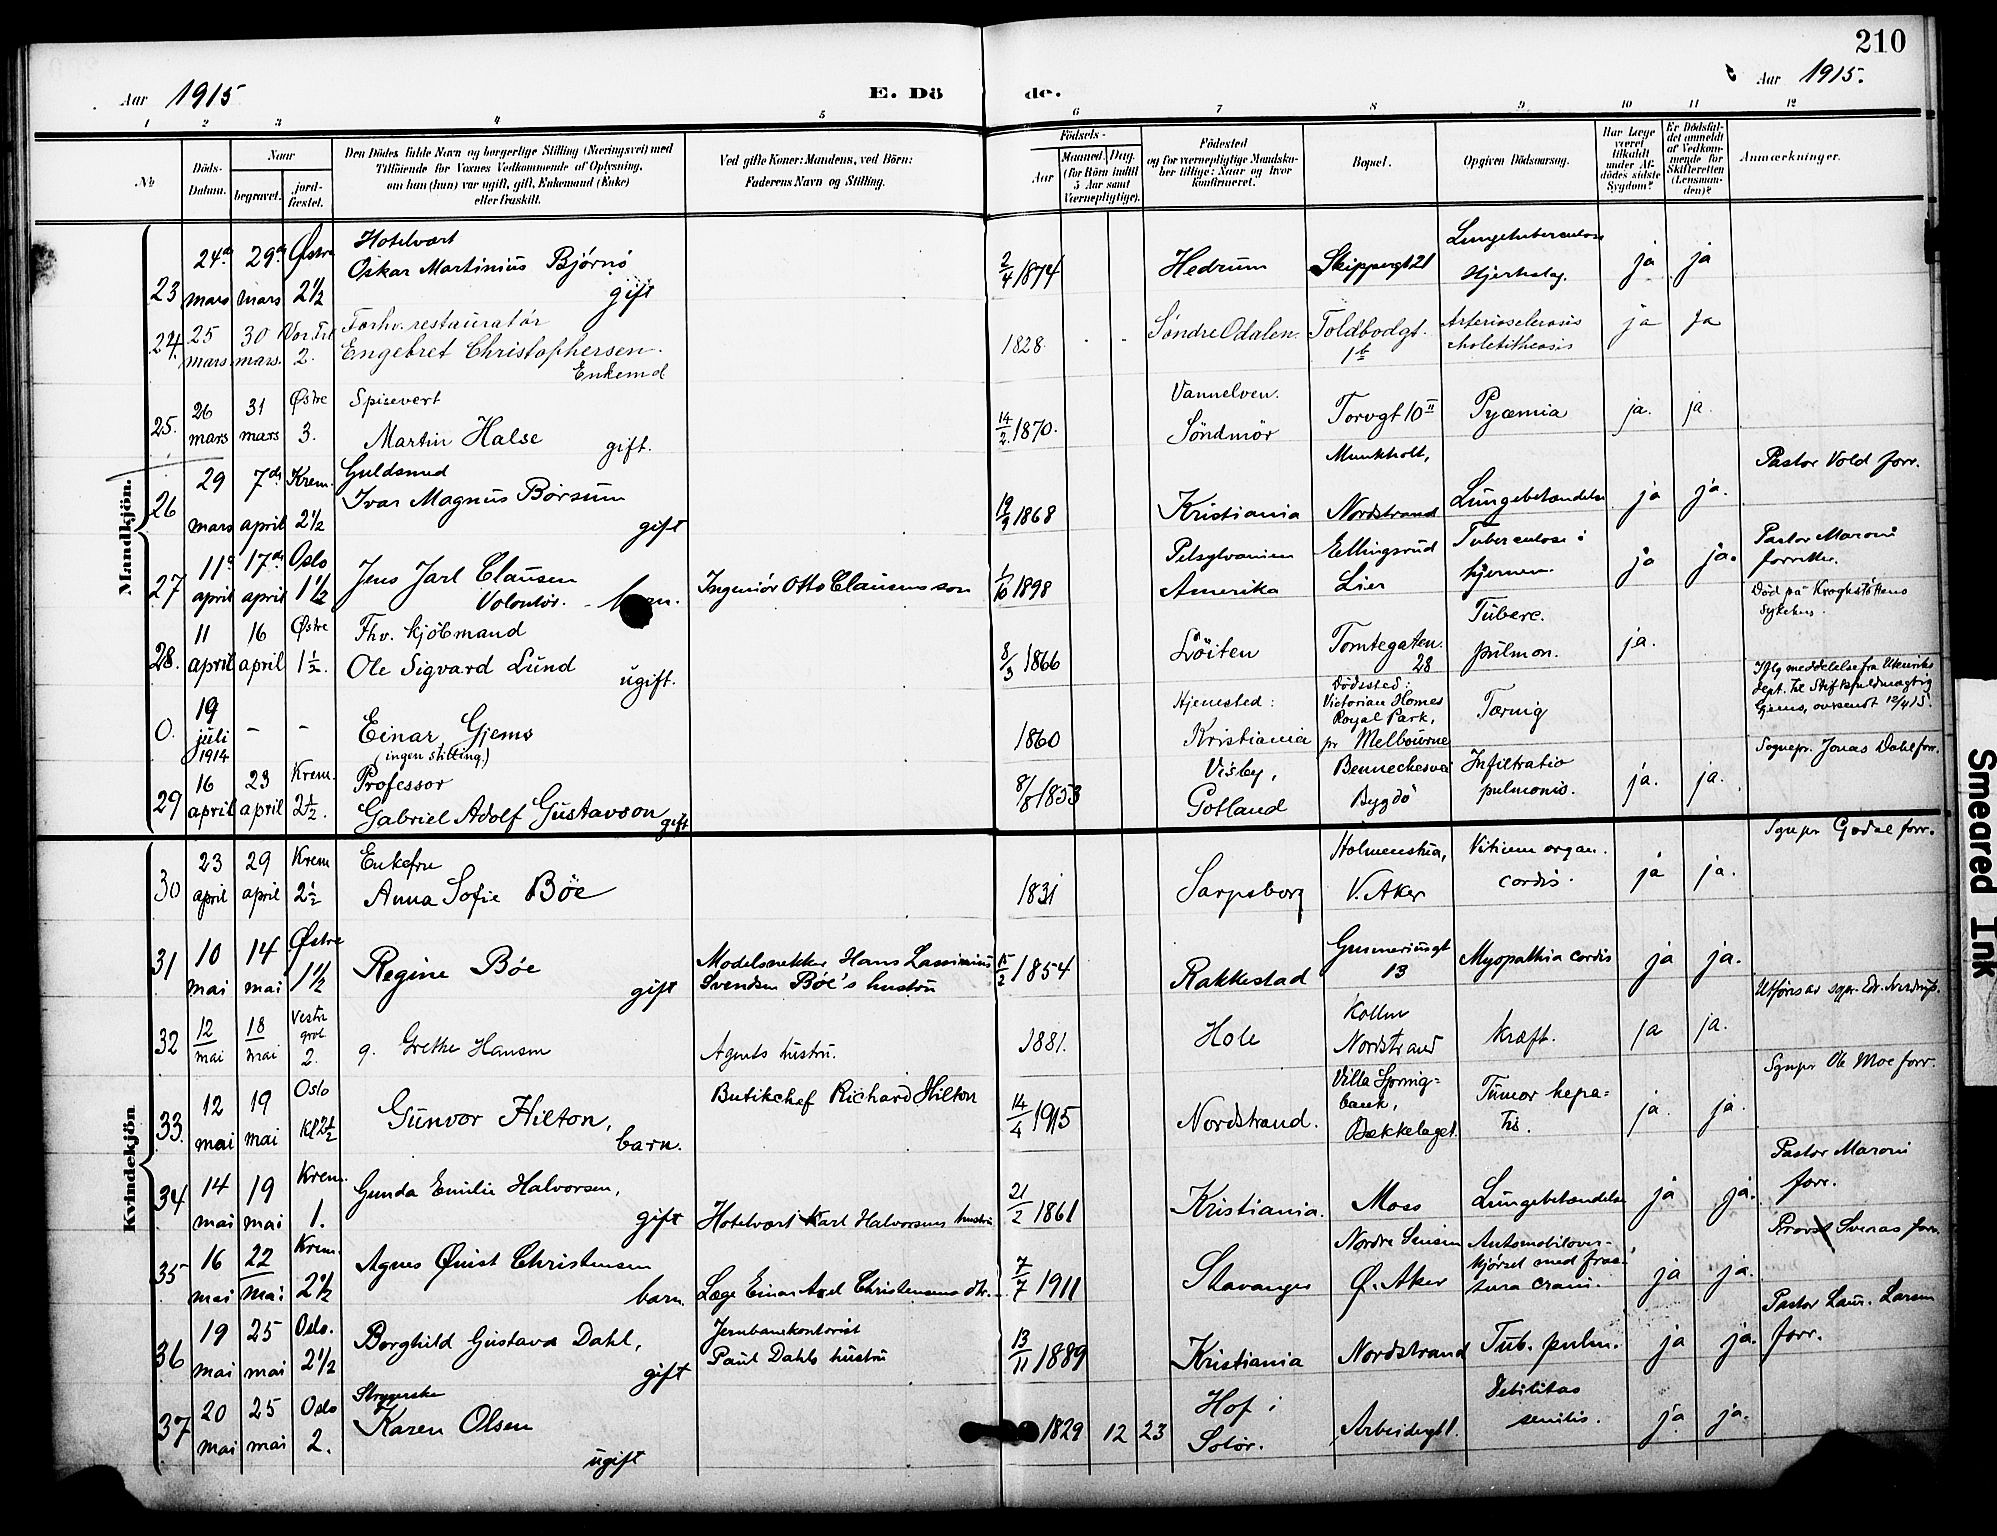 210
Aar 1915
E. Dö
de.
Aar 1915.
1 2 3 4 5 6 7 8 9 10 11 12
No
Döds-
Datum.
Naar
begravet.
jord-
fæstet.
Den Dödes fulde Navn og borgerlige Stilling (Næringsvei) med
Tilföiende for Voxnes Vedkommende af Oplysning,
om han (hun) var ugift, gift, Enkemand (Enke)
eller fraskilt.
Ved gifte Koner: Mandens, ved Börn:
Faderens Navn og Stilling.
Födsels-
Aar
Maaned. Dag.
(for Börn indtil
5 Aar samt
Værnepligtige).
Födested
og for værnepligtige Mandska-
ber tillige: Naar og hvor
konfirmeret.
Bopæl.
Opgiven Dödsaarsag.
Har Læge
været
tilkaldt
under Af-
dödes sidste
Sygdom?
Er Dödsfal-
det anmeldt
af Vedkom-
mende for
Skifteretten
(Lensman-
den)?
Anmærkninger.
Mandkjön.
23 24de mars 29de mars Østre 2 1/2
Hotelvært
Oskar Martinius Bjørnø
gift
2/4 1874 Hedrum Skippergt 21 Lungetuberculose
Hjerteslag. ja ja
24. 25 mars 30 mars. Vor Frl 2.
Forhv. restauratør
Engebret Christophersen.
Enkemd
1828 Søndre Odalen. Toldbodgt. 1b Arteriosclerosis
ja ja
25. 26 mars 31 mars Østre 3.
Spisevert
Martin Halse
gift.
14/2 1870. Vannelven.
Søndmør Torvgt 10 II Pyæmia ja. ja.
26 29 mars 7de april Krem. 2 1/2
Guldsmed
Ivar Magnus Børsum
gift
19/9 1868 Kristiania Munkholt,
Nordstrand Lungebetændelse ja ja. Pastor Vold forr.
27 11te april 17de april Oslo 1 1/2
Jens Jarl Clausen
Volontør. - barn.
Ingeniør Otto Clausens søn
1/10 1898 Pelsylvanien
Amerika Ellingsrud
Lier Tuberculose i
hjernen. ja ja. Pastor Maroni
forretter.
28. 11 april 16 april Østre 1 1/2.
Fhv. kjøbmand
Ole Sigvard Lund
ugift.
8/3 1866 Løiten Tomtegaten.
28 Tuberc.
pulmon. ja. Død på Krogkstøttens
sykehus.
0. 19 juli 1914 - -
Einar Gjems
(ingen stilling.)
1860 Hjemsted:
Kristiania Dødssted:
Victorian Homes
Royal Park,
pr Melbourne Tæring
Iflg meddelelse fra Utenriks
dept. til Stiftsfuldmægtig
Gjems, oversendt 12/4 15.
29 16 april 23 april Krem. 2 1/2.
Professor
Gabriel Adolf Gustavson gift
8/8 1853 Visby,
Gotland Benneckesvei
Bygdø Infiltratio
pulmonis. ja. ja. Sognepr. Jonas Dahl forr.
Kvindekjön
30 23 april 29 april Krem 2 1/2
Enkefru
Anna Sofie Bøe
1831 Sarpsborg Holmenskia,
V. Aker Vitium organ.
cordis. ja ja. Sgnepr Godal forr.
31 10 mai 14 mai Østre 1 1/2
Regine Bøe
gift
Modelsnekker Hans
Svendsen Bøe's hustru
15/2 1854 Rakkestad
13 Myopathia cordis ja ja.
32 12 mai 18 mai Vestre grvl. 2.
g. Grethe Hansen
Agents hustru.
1881. Hole Kollen
Nordstrand kræft. ja ja. Utføres av sgpr. Edv. Nerdrup.
33. 12 mai 19 mai Oslo Kl 2 1/2
Gunvor Hilton,
barn.
Butikchef Richard Hilton
14/4 1915 Nordstrand. Villa Spring-
bank,
Bækkelaget. Tumor hepa-
tis. ja. ja. Sgnepr Ole Moe forr.
34 14 mai 19 mai Krem. 1.
Gunda Emilie Halvorsen,
gift
Hotelvært Karl Halvorsens hustru
21/2 1861 Kristiania. Moss Lungebetændelse ja ja. Pastor Maroni
forr.
35 16 mai 22 mai Krem. 2 1/2
Agnes Qvist Christensen
barn.
Læge Einar Axel Christensens dtr.
7/7 1911 Stavanger Nordre Sinsen
Ø. Aker Automobilover-
kjørsel med frac-
tura cranii. ja ja. Provst Svenas forr.
36 19 mai 25 mai Oslo. 2 1/2
Borghild Gustava Dahl,
gift
Jernbanekontorist
Paul Dahls hustru
13/11 1889 Kristiania Nordstrand Tub. pulm. ja ja. Pastor Laur. Larsen
forr.
37 20 mai 25 mai Oslo 2.
Strygerske
Karen Olsen
ugift
1829 12 23 Hof i
Solør. Arbeidergt 1. Debilitas
senilis. ja ja.
Smeared Ink